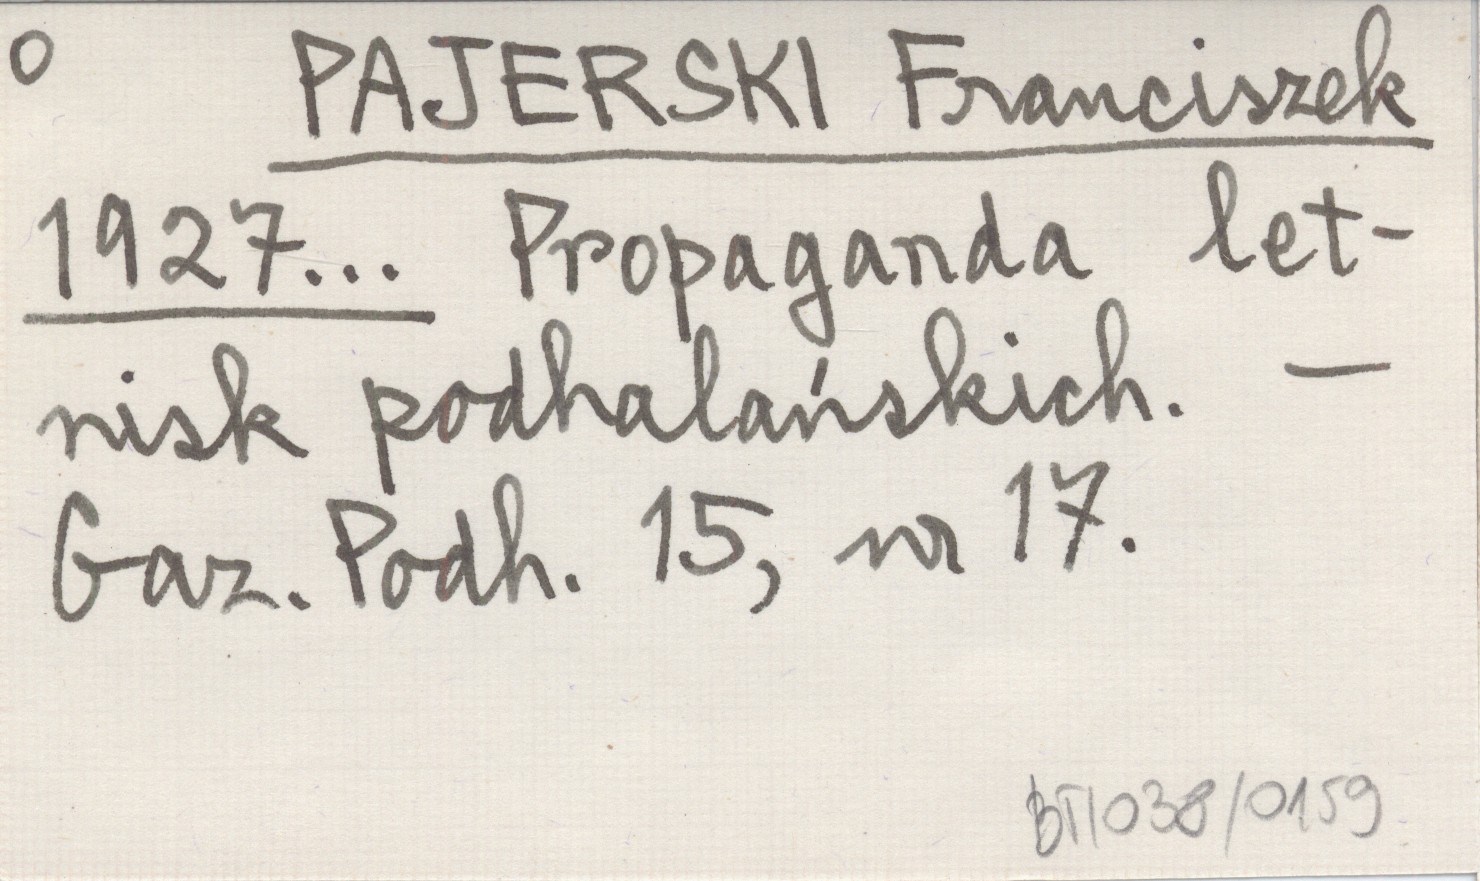 o PAJERSKI Franciszek
1927... Propaganda let-
nisk podhalańskich. —
Gaz. Podh. 15, nr 17.
BT/038/0159